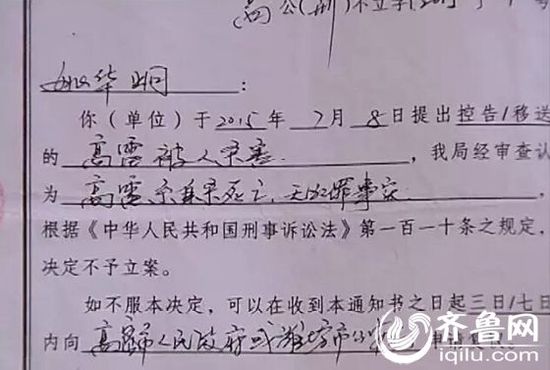 高公(刑)不立字
华
你（单位）于2015年7月8日提出控告/移送
的高雷被人杀害，我局经审查认
为高雷系自杀死亡、无犯罪事实，
根据《中华人民共和国刑事诉讼法》第一百一十条之规定，
决定不予立案。
如不服本决定，可以在收到本通知书之日起三日/七日
内向高密市人民政府或潍坊市公申请复议。
齐鲁网
iqilu.com